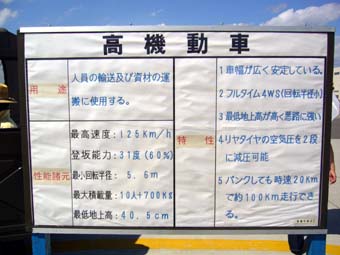 高機動車
用途
人員の輸送及び資材の運
搬に使用する。
性能諸元
最高速度：125Km/h
登坂能力：31度(60%)
最小回転半径： 5.6m
最大積載量：10人+700Kg
最低地上高：40.5cm
特性
1 車幅が広く安定している。
2 フルタイム4WS(回転半径小)
3 最低地上高が高く悪路に強い
4 リヤタイヤの空気圧を2段
に減圧可能
5 パンクしても時速20Km
で約100Km走行でき
る。